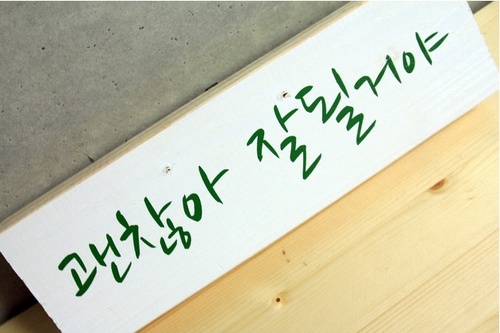 괜찮아 잘될거야